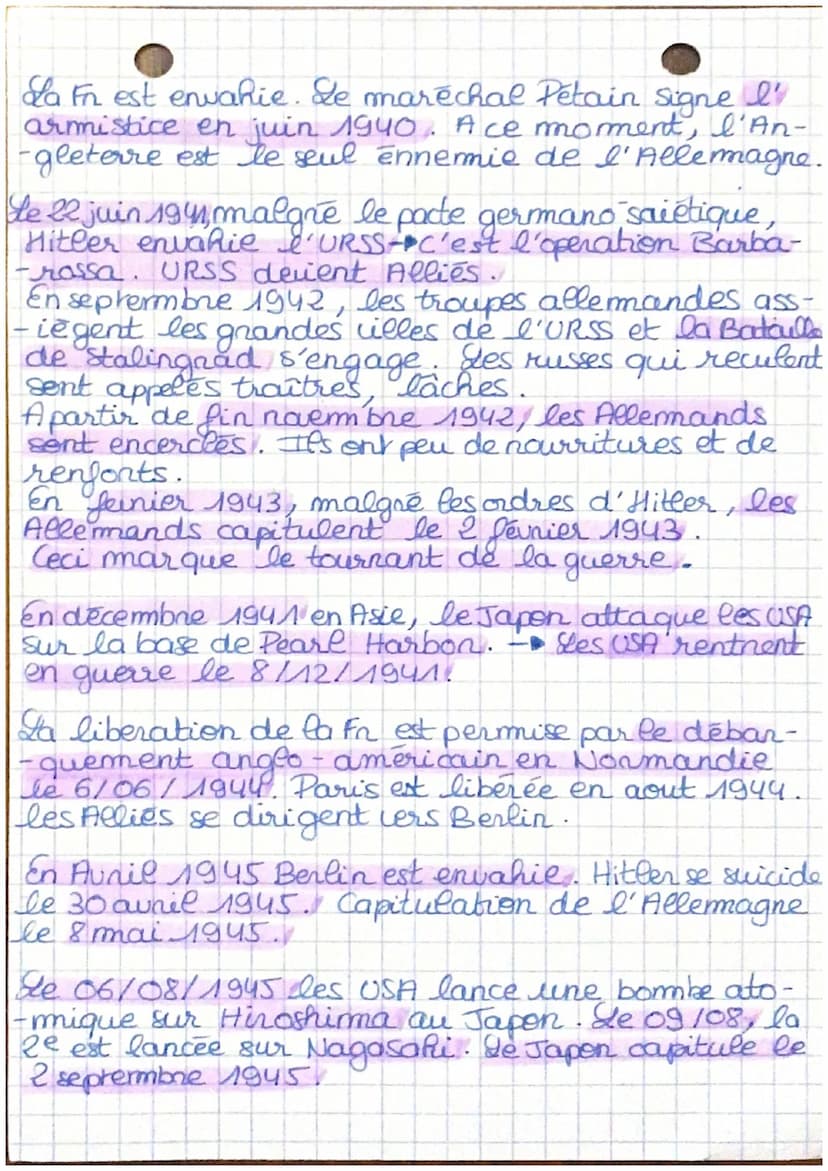 La Fn est envahie. Le maréchal Pétain signe l'
armistice en juin 1940. A ce moment, l'An-
-gleterre est le seul ennemie de l'Allemagne.
Le 22 juin 1941, malgré le pacte germano-soiétique,
Hitler envahie l'URSS → C'est l'opération Barba-
-rossa. URSS devient Alliés.
En septembre 1942, les troupes allemandes ass-
-iègent les grandes villes de l'URSS et la Bataille
de Stalingrad s'engage. Les russes qui reculent
sont appelés traîtres, lâches.
A partir de fin novembre 1942, les Allemands
sont encerclés. Ils ont peu de nourritures et de
renforts.
En février 1943, malgré les ordres d'Hitler, les
Allemands capitulent le 2 février 1943.
Ceci marque le tournant de la guerre.
En décembre 1941 en Asie, le Japon attaque les USA
sur la base de Pearl Harbor. → Les USA rentrent
en guerre le 8/12/1941.
La liberation de la Fn est permise par le débar-
-quement anglo-américain en Normandie
le 6/06/1944. Paris est libérée en aout 1944.
les Alliés se dirigent vers Berlin.
En Avril 1945 Berlin est envahie. Hitler se suicide
le 30 avril 1945. Capitulation de l'Allemagne
le 8 mai 1945.
Le 06/08/1945 les USA lance une bombe ato-
-mique sur Hiroshima au Japon. Le 09/08, la
2e est lancée sur Nagasaki. Le Japon capitule le
2 septembre 1945.